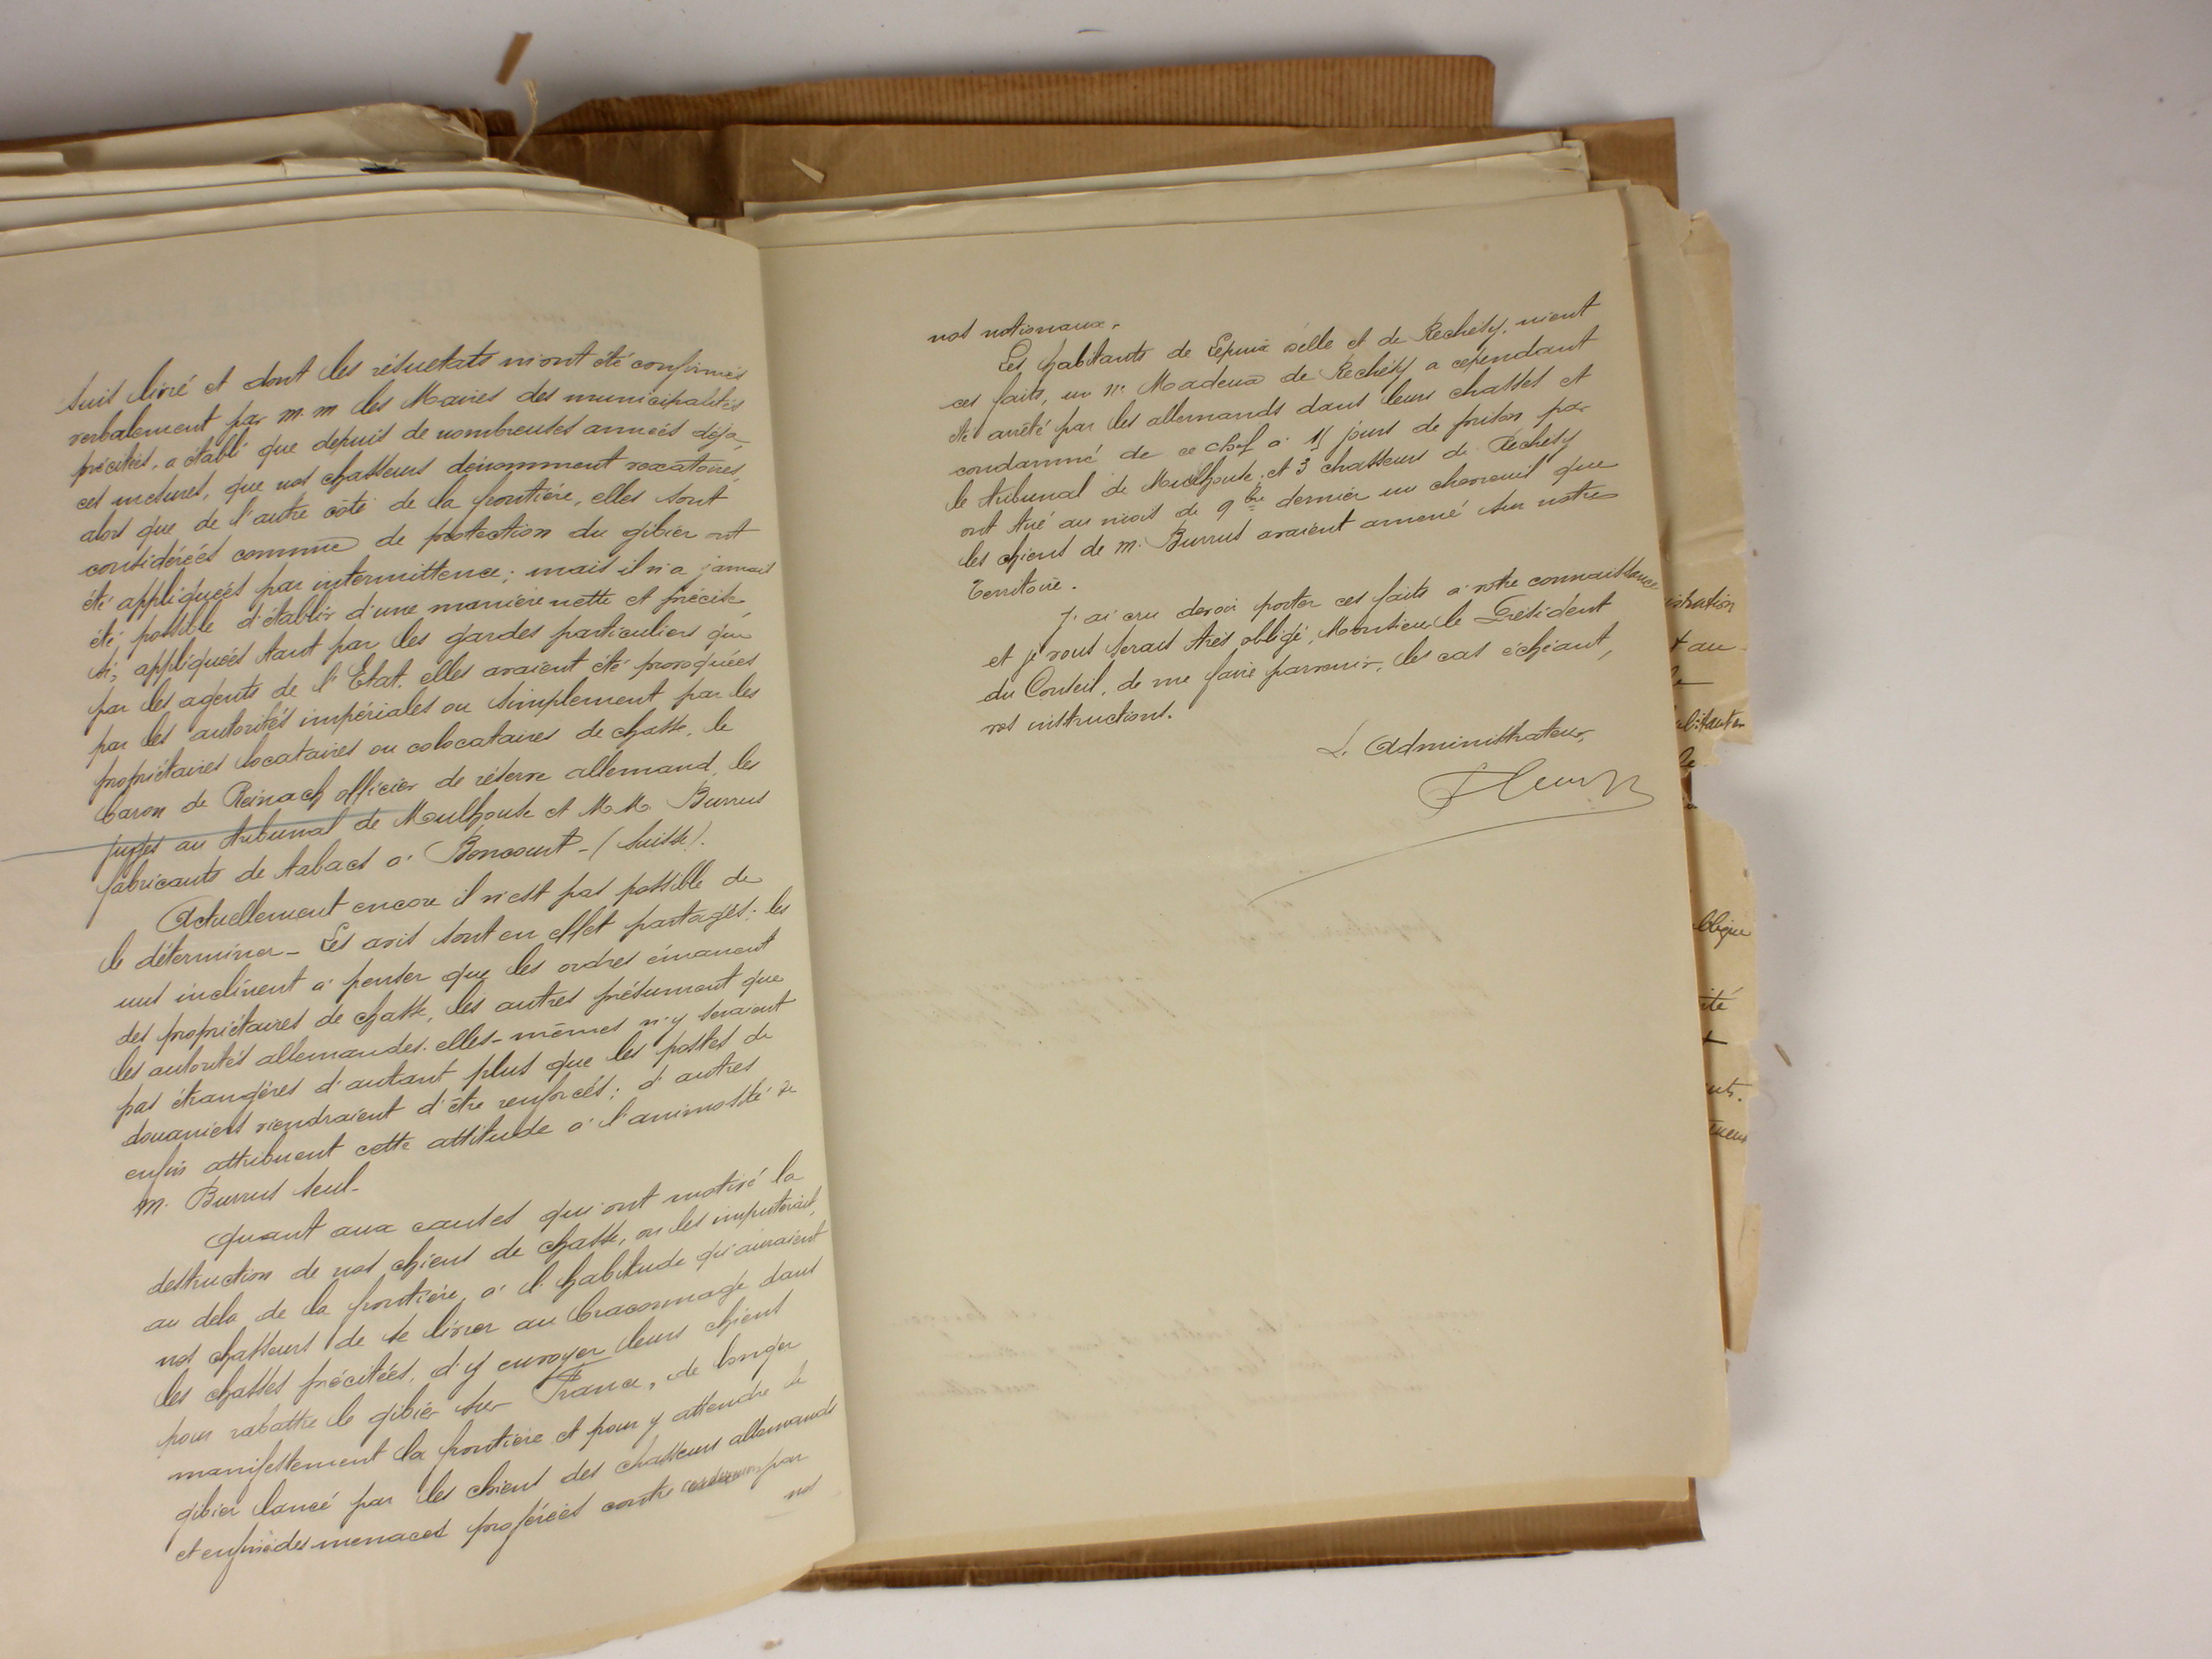 suis livré et dont les résultats m'ont été confirmés
verbalement par M.M les Maires des municipalités
précitées, a établi que depuis de nombreuses années déjà,
ces mesures, que nos chasseurs dénomment vexatoires,
alors que de l'autre côté de la frontière, elles sont
considérées comme de protection du gibier ont
été appliquées par intermittence; mais il n'a jamais
été possible d'établir d'une manière nette et précise,
si, appliquées tant par les gardes particuliers que
par les agents de l'Etat. elles avaient été provoquées
par les autorités impériales ou simplement par les
propriétaires locataires ou colocataires de chasse, le
baron de Reinach officier de réserve allemand, les
juges au tribunal de Mulhouse et M.M. Burrus
fabricants de tabacs à Boncourt - (Suisse).
Actuellement encore il n'est pas possible de
le déterminer - Les avis sont en effet partagés: les
uns inclinent à penser que les ordres émanent
des propriétaires de chasse, les autres présument que
les autorités allemandes. elles-mêmes n'y seraient
pas étrangères d'autant plus que les postes de
douaniers viendraient d'être renforcés; d'autres
enfin attribuent cette attitude à l'animosité de
M. Burrus seul-
Quant aux causes qui ont motivé la
destruction de nos chiens de chasse, on les imputerait,
au delà de la frontière, à l'habitude qu'auraient
nos chasseurs de se livrer au braconnage dans
les chasses précitées, d'y envoyer leurs chiens
pour rabattre le gibier sur France, de longer
manifestement la frontière et pour y attendre le
gibier lancé par les chiens des chasseurs allemands
et enfin à des menaces proférées contre par
nos
nos nationaux.
Les habitants de Lepuix Delle et de Rechésy, nient
ces faits, un Mr Madeux de Rechésy a cependant
été arrêté par les allemands dans leurs chasses et
condamné de ce chef à 15 jours de prison par
le tribunal de Mulhouse, et 3 chasseurs de Rechésy
ont tué au mois de 9bre dernier un chevreuil que
les chiens de M. Burrus avaient amené sur notre
Territoire.
J'ai cru devoir porter ces faits à votre connaissance
et je vous serais très obligé, Monsieur le Président
du Conseil, de me faire parvenir, les cas échéant,
vos instructions.
L'Administrateur,
istration
t au
le
abitants
oblique
ité